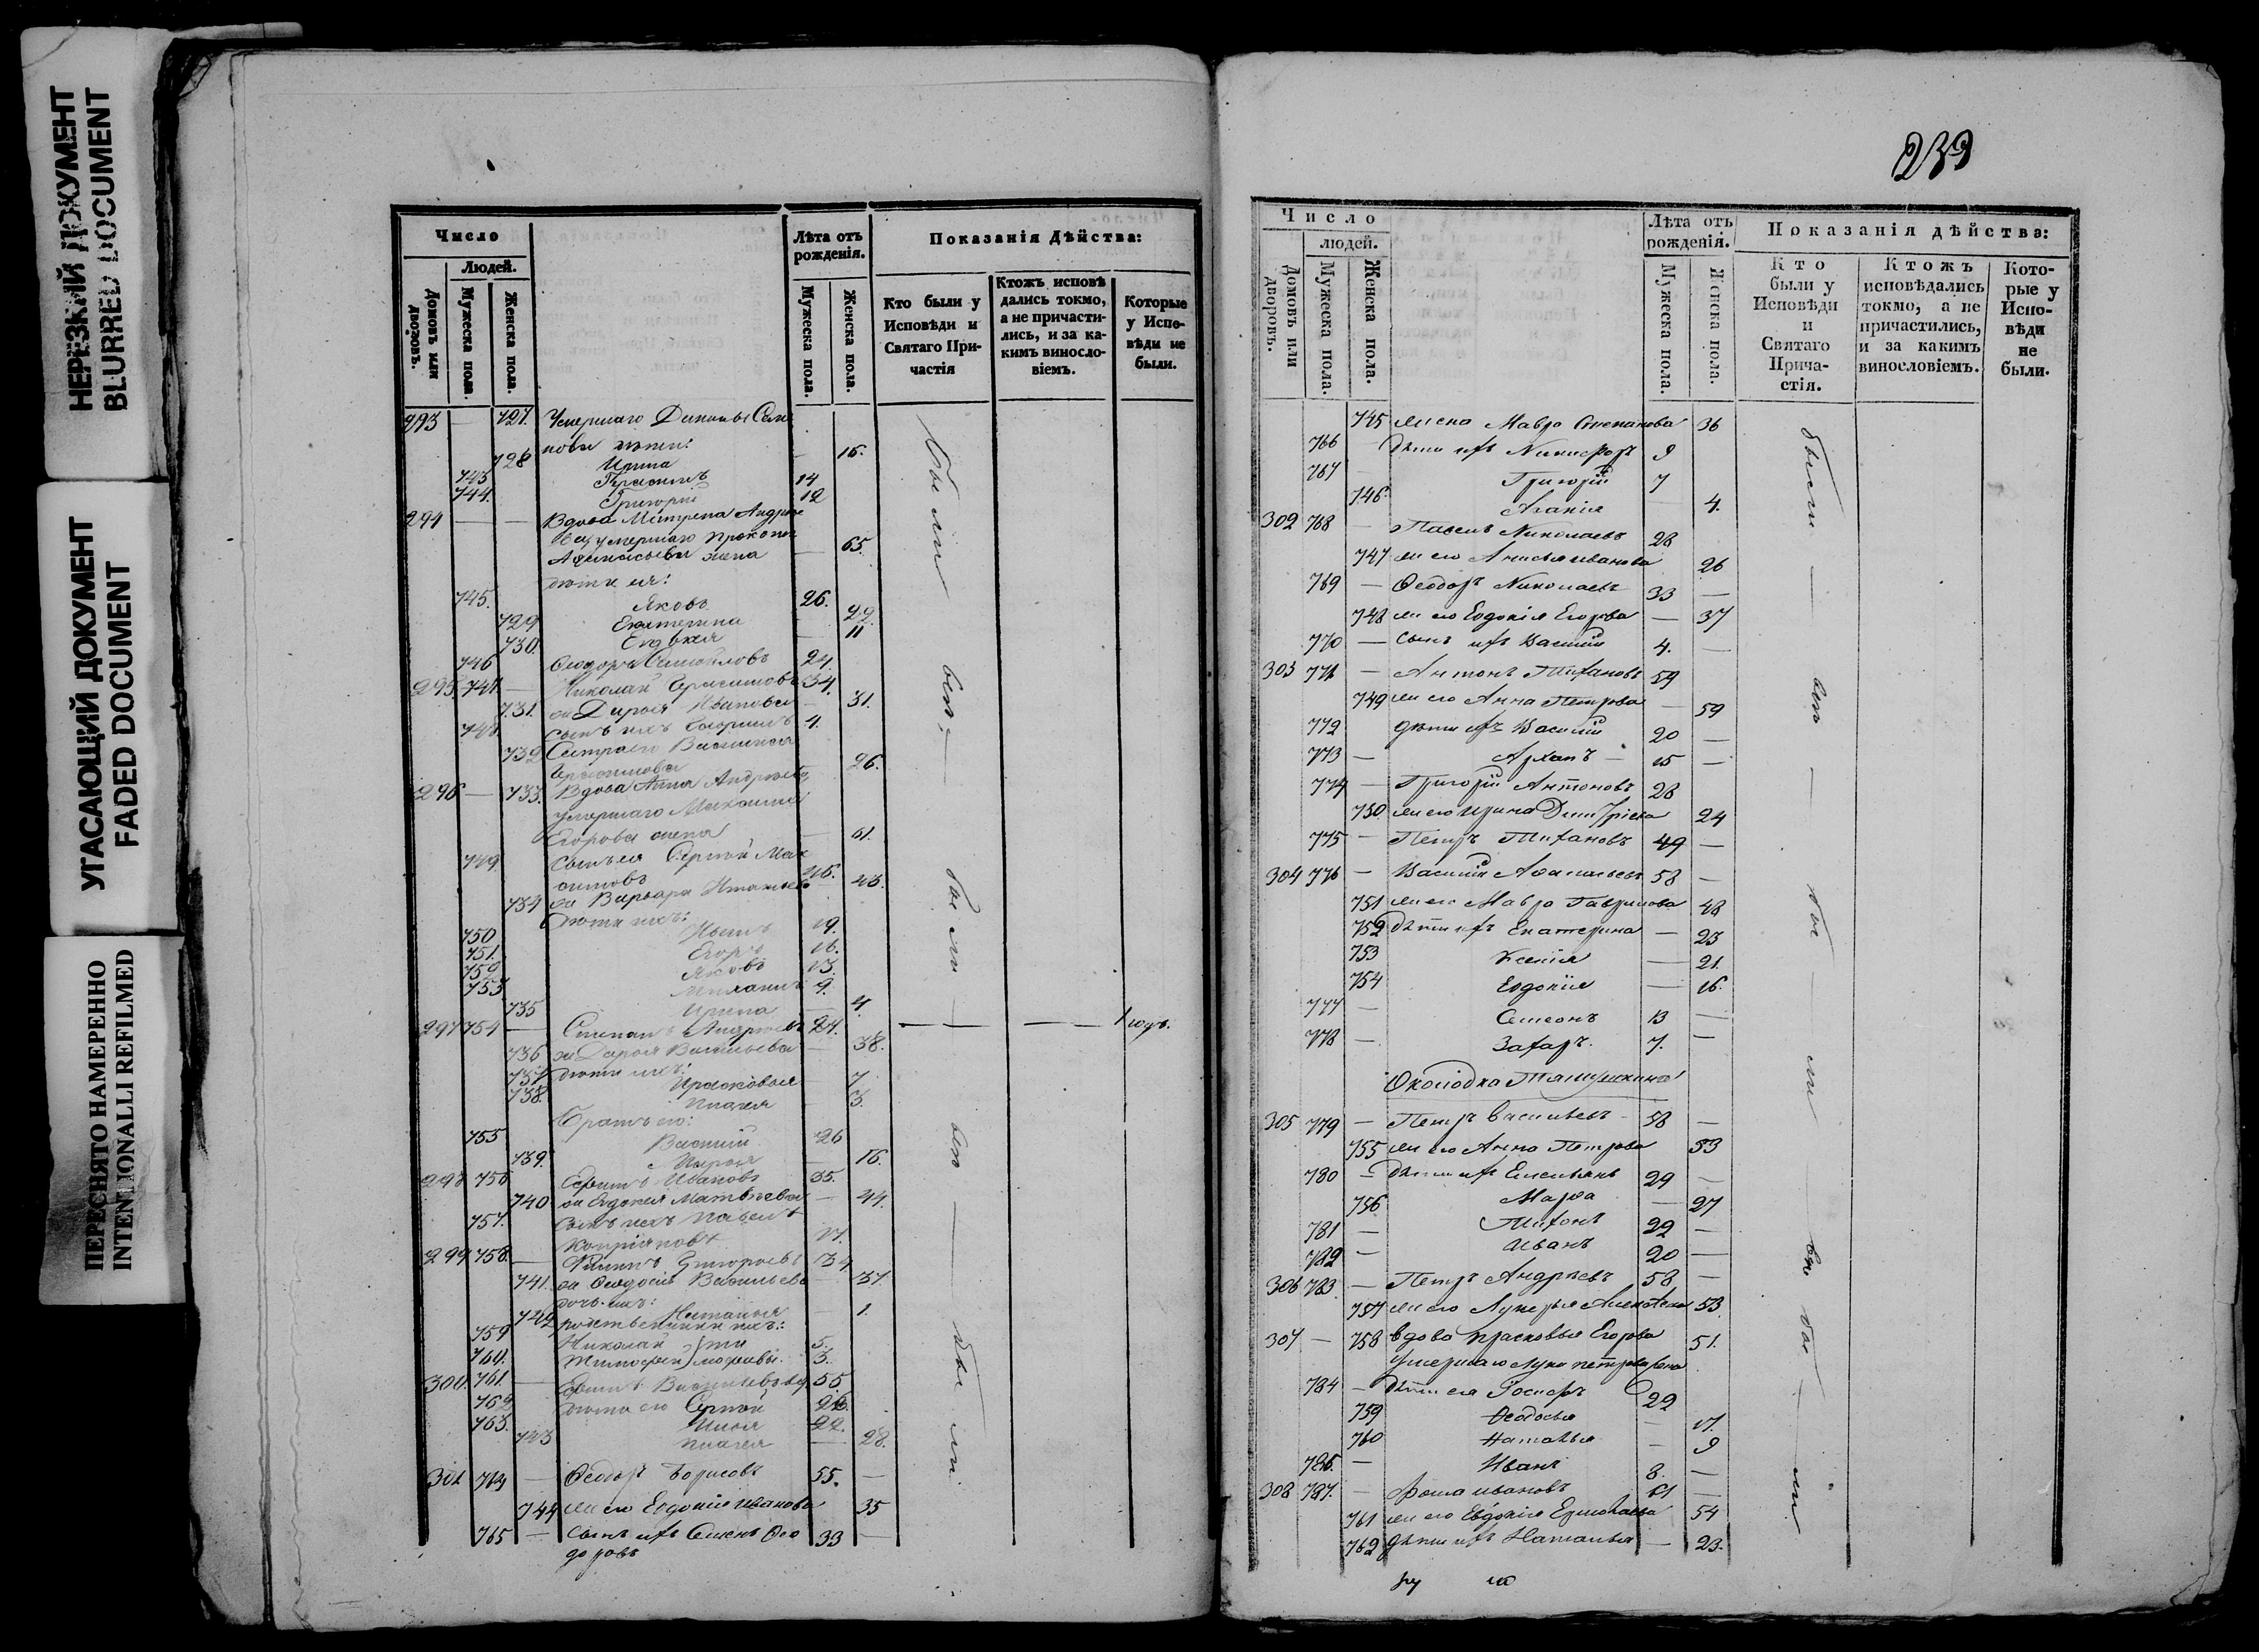 НЕРЕЗКИЙ ДОКУМЕНТ
BLURRED DOCUMENT
УГАСАЮЩИЙ ДОКУМЕНТ
FADED DOCUMENT
ПЕРЕСНЯТО НАМЕРЕННО
INTENTIONALLI REFILMED
Число
Людей.
Домовъ или дворовъ.
Мужеска пола.
Женска пола.
Лѣта отъ рожденія.
Мужеска пола.
Женска пола.
Показанія Дѣйства:
Кто были у Исповѣди и Святаго При-
частія
Ктожъ исповѣ
дались токмо,
а не причасти-
лись, и за ка-
кимъ винословіемъ.
Которые
у Испо-
вѣди не
были.
293 — 727. Умершаго
дѣти:
728 Ирина — 16.
743 Герасимъ 14
744. Григорій 12
294 — — Вдова Матрена Андрѣе
ва умершаго Прокопія
Афанасьева жена — 65.
дѣти ея:
745. Яковъ 26.
729 Екатерина — 22.
730. Евдокія — 11
746 Ѳеодоръ Самойловъ 24.
295 747 — Николай Герасимовъ 34.
731. Дарья Иванова — 31.
748 сынъ ихъ
732 Сестра его Василиса
Герасимова 26.
296 — 733. Вдова Анна Андрѣева
умершаго Максима
Егорова жена — 61.
749. Сынъ ея Сергѣй Мак
симовъ
734 Варвара
Дѣти ихъ:
750 19.
751. Егоръ 16.
752 Яковъ 13.
753 Михаилъ 9.
735 Ирина 4.
297 754 — Степанъ Андрѣевъ 24. — — 1 годъ.
736 Дарья Васильева — 38.
737 дѣти ихъ: Прасковья 7
738. Пелагея 3.
Братъ его:
755 Василій 26
739. Марья — 16.
298 756 Ефимъ Ивановъ 35.
740 Евдокея Матвѣева — 44.
757. сынъ ихъ Павелъ
299 758. — Филипъ Григорьевъ 34
741. Ѳеодосья Васильева — 37
дочь ихъ:
742 Наталья — 1.
родственники ихъ:
759 Николай 5.
760. Тимофей 3.
300. 761. — Ефимъ Васильевъ вд. 55.
762 дѣти его Сергѣй 26.
763. Илья 22.
743 Пелагея — 28.
301 764 — Ѳеодоръ Борисовъ 55. —
744 жена его Евдокія Иванова 35
765 — Сынъ ихъ Семенъ Ѳео 33 —
доровъ
были — вси — были — вси — были.
239
Число
людей.
Домовъ или дворовъ.
Мужеска пола.
Женска пола.
Лѣта отъ рожденія.
Мужеска пола.
Женска пола.
Показанія дѣйства:
Кто
были у
Исповѣди
и
Святаго
Прича-
стія.
Ктожъ
исповѣдались
токмо, а не
причастились,
и за какимъ
винословіемъ.
Кото-
рые у
Испо-
вѣди
не
были.
745 жена Мавра Степанова 36
766 дѣти ихъ Никифоръ 9
767 — Григорій 7
746 — 4.
302 768 — Павелъ Николаевъ 28
747 жена его Анисья Иванова 26
769 — Ѳеодоръ Николаевъ 33 —
748 жена его Евдокія Егорова — 37
770 — сынъ ихъ Василій 4. —
303 771 — Антонъ Тихановъ 59
749 жена его Анна Петрова — 59
772 дѣти ихъ Василій 20 —
773 — 15 —
774 — Григорій Антоновъ 28
750 жена его Ирина Димитріева 24
775 — Петръ Тихановъ 49 —
304 776 — Василій Афанасьевъ 58 —
751 жена его Мавра Гаврилова 48
752 дѣти ихъ Екатерина — 23
753 Ксенія — 21.
754 Евдокія — 16.
777 — Семеонъ 13 —
778 — Захаръ. 7. —
Околодка
305 779 — Петръ Васильевъ 58 —
755 жена его Анна Петрова 53
780 — дѣти ихъ Емельянъ 29 —
756 Марфа — 27
781 — Тихонъ 22 —
782 — Иванъ 20 —
306 783 — Петръ Андрѣевъ 58 —
757 жена его Лукерья Алексѣева 53
307 — 758 вдова Прасковья Егорова 51.
Умершаго Луки Петрова жена
784 — Дѣти ея Іосифъ 22
759 Ѳеодосья — 17.
760 Наталья — 9
786. — Иванъ 8. —
308 787. — Фома Ивановъ 61 —
761 жена его Евдокія Ермолаева 54
762 дѣти ихъ Наталья — 23.
были — вси — были — вси — были